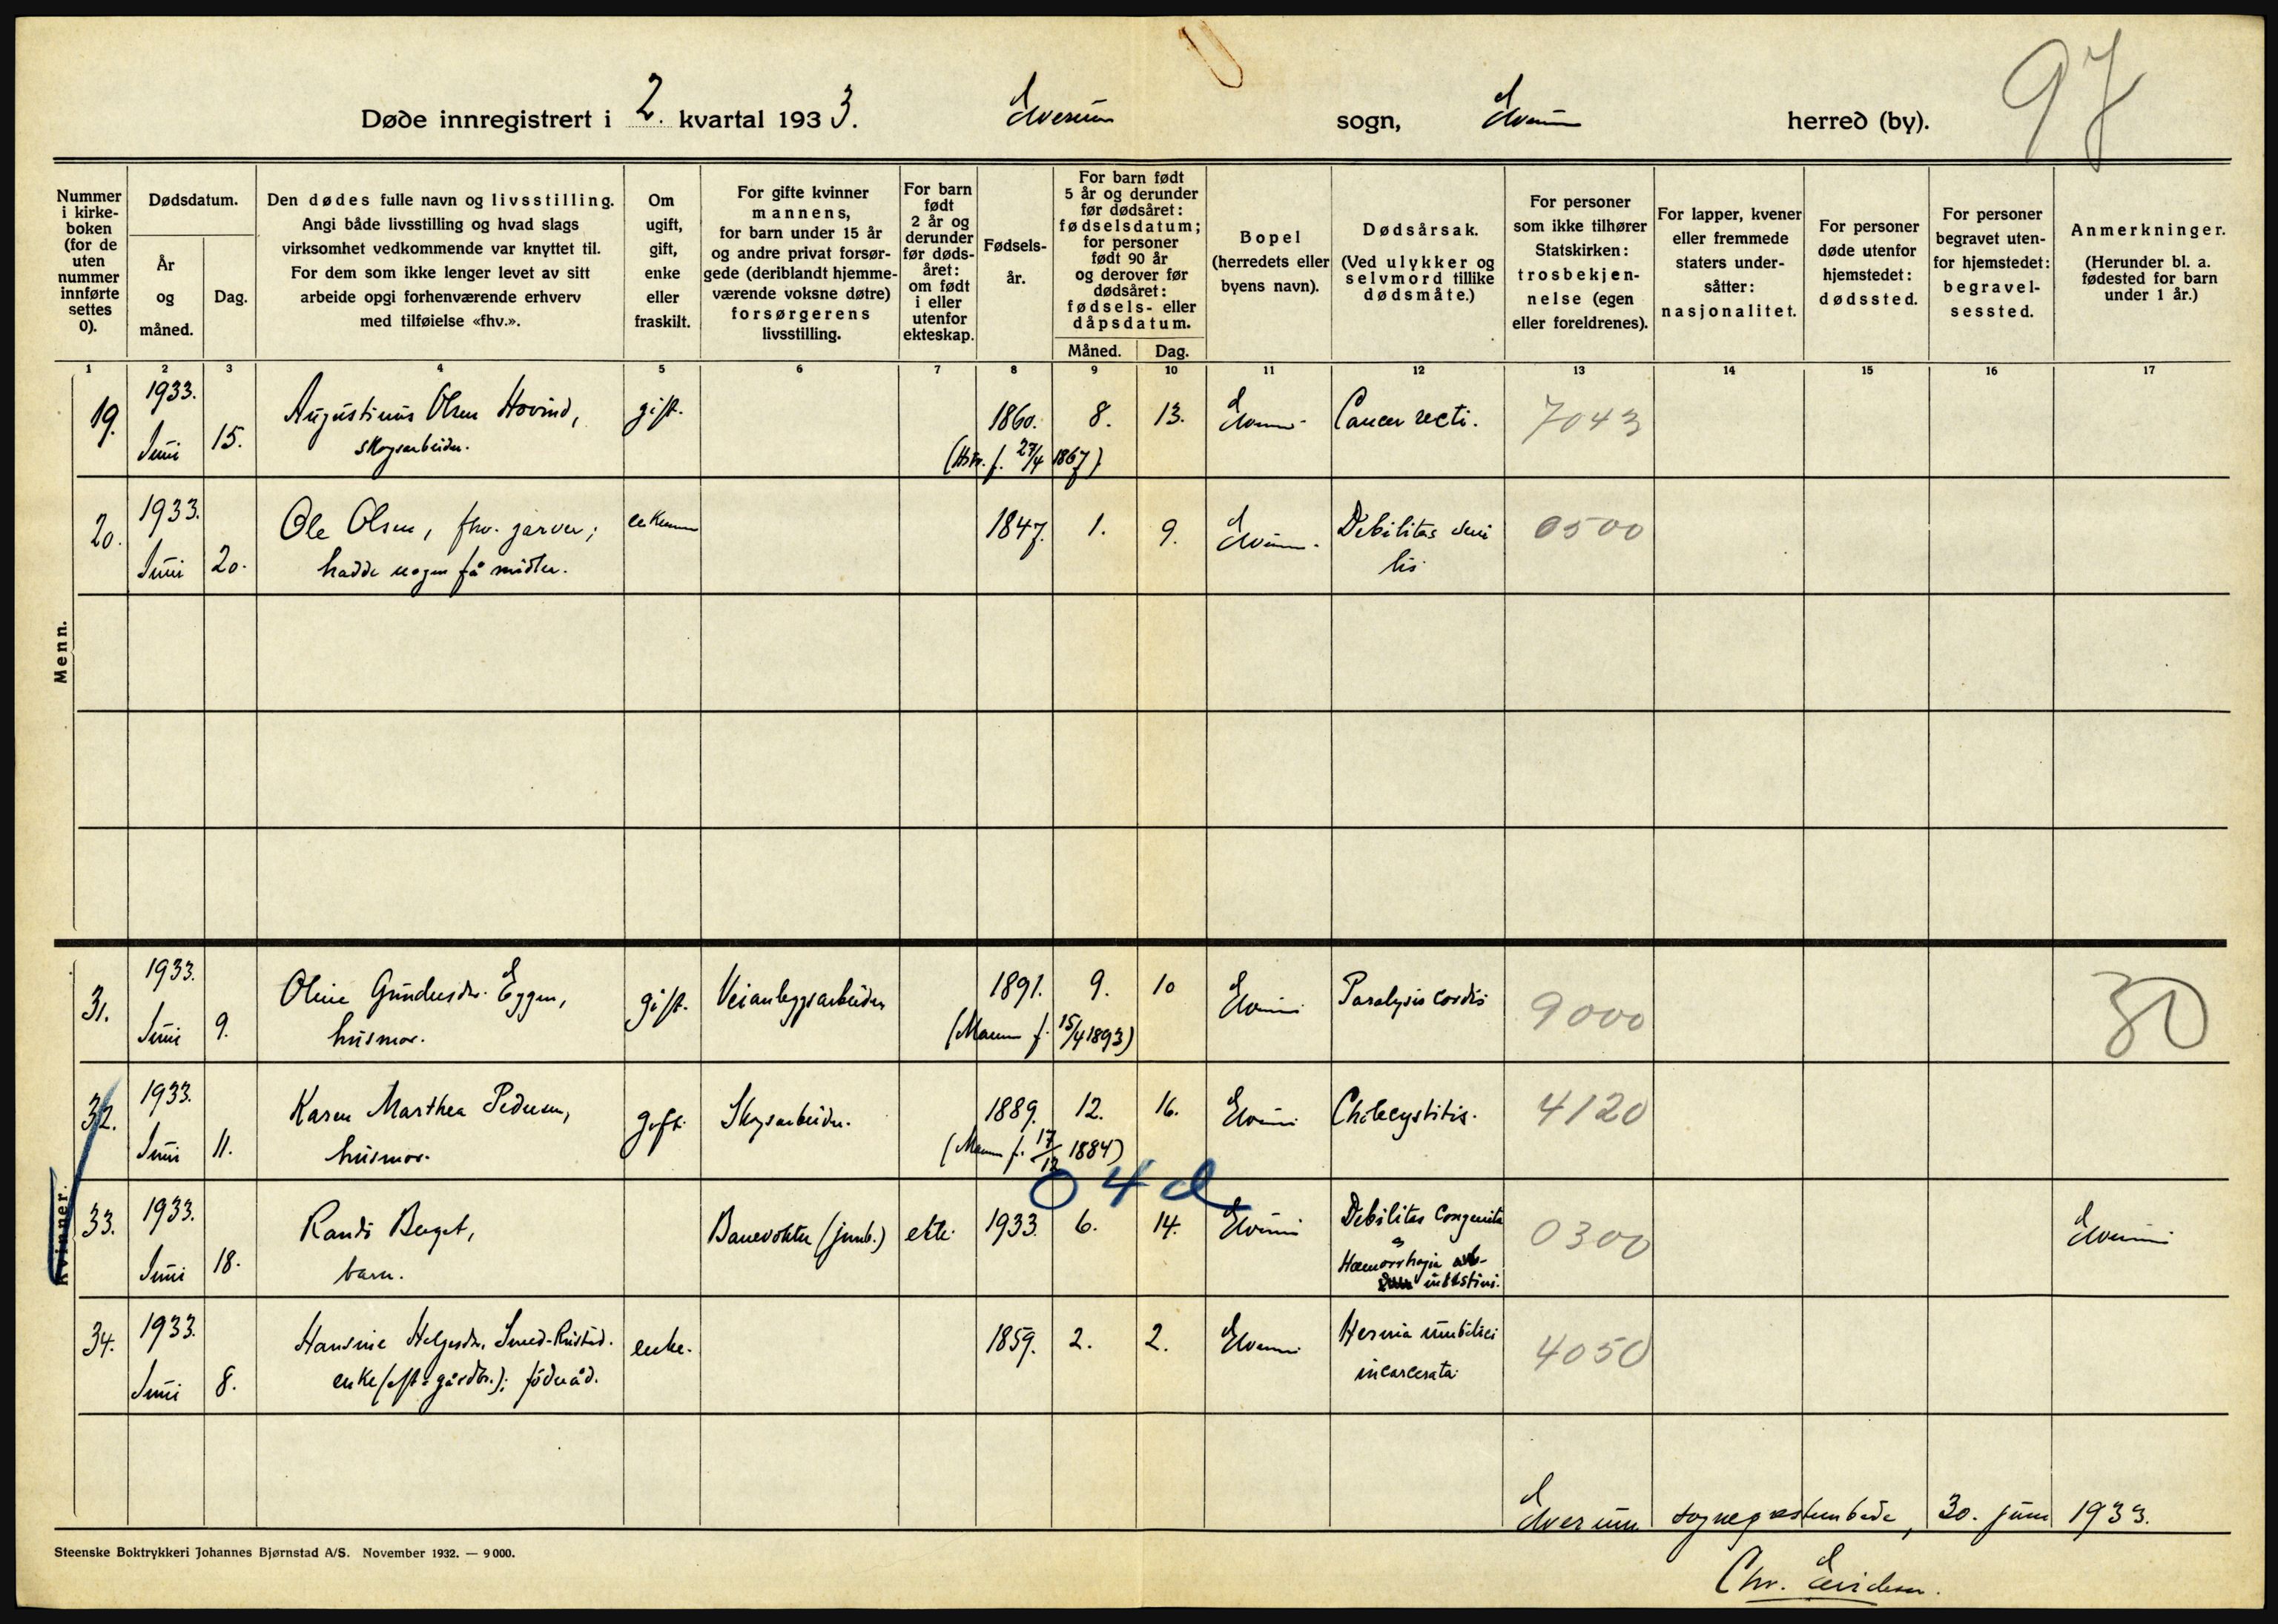 97
Døde innregistrert i 2. kvartal 1933. Elverum sogn, Elverum herred (by).
Nummer i kirkeboken (for de uten nummer innførte settes 0).
Dødsdatum.
År og måned.
Dag.
Den dødes fulle navn og livsstilling.
Angi både livsstilling og hvad slags
virksomhet vedkommende var knyttet til.
For dem som ikke lenger levet av sitt
arbeide opgi forhenværende erhverv
med tilføielse «fhv.».
Om ugift, gift, enke eller fraskilt.
For gifte kvinner mannens, for barn under 15 år og andre privat forsørgede (deriblandt hjemmeværende voksne døtre) forsørgerens livsstilling.
For barn født 2 år og derunder før dødsåret: om født i eller utenfor ekteskap.
Fødselsår.
For barn født 5 år og derunder før dødsåret: fødselsdatum; for personer født 90 år og derover før dødsåret: fødsels- eller dåpsdatum.
Måned. Dag.
Bopel (herredets eller byens navn).
Dødsårsak. (Ved ulykker og selvmord tillike dødsmåte.)
For personer som ikke tilhører Statskirken: trosbekjennelse (egen eller foreldrenes).
For lapper, kvener eller fremmede staters undersåtter: nasjonalitet.
For personer døde utenfor hjemstedet: dødssted.
For personer begravet utenfor hjemstedet: begravelsessted.
Anmerkninger. (Herunder bl. a. fødested for barn under 1 år.)
1 2 3 4 5 6 7 8 9 10 11 12 13 14 15 16 17
Menn.
19. 1933. Juni 15. Augustinus Olsen Hovind, gift. 1860. 8. 13. Elverum. Cancer recti. 7043
skogsarbeider. (Hstr. f. 27/4 1867)
20. 1933. Juni 20. Ole Olsen, fhv. garver; enkemann 1847. 1. 9. Elverum. Debilitas seni
hadde nogen få midler. lis 0500
Kvinner.
31. 1933. Juni 9. Oline Gundersdr. Eggen, gift. Veianleggsarbeider 1891. 9. 10 Elverum Paralysis cordis 9000 30
husmor. (Mann f. 15/4 1893)
32. 1933. Juni 11. Karen Marthea Pedersen, gift. Skogsarbeider. 1889. 12. 16. Elverum Cholecystitis. 4120
husmor. (Mann f. 17/12 1884)
0 4 d
33. 1933. Juni 18. Randi Berget, Banevokter (jernb.) ekte 1933. 6. 14. Elverum Debilitas congenita 0300 Elverum
barn. Hæmorrhagia
intestini.
34. 1933. Juni 8. Hansine Helgesdr. Smed-Rustad. enke. 1859. 2. 2. Elverum Hernia umbilici 4050
enke (eft. gårdbr.); föderåd. incarcerata
Elverum sogneprestembede, 30. juni 1933.
Steenske Boktrykkeri Johannes Bjørnstad A/S. November 1932. — 9 000.
Chr.